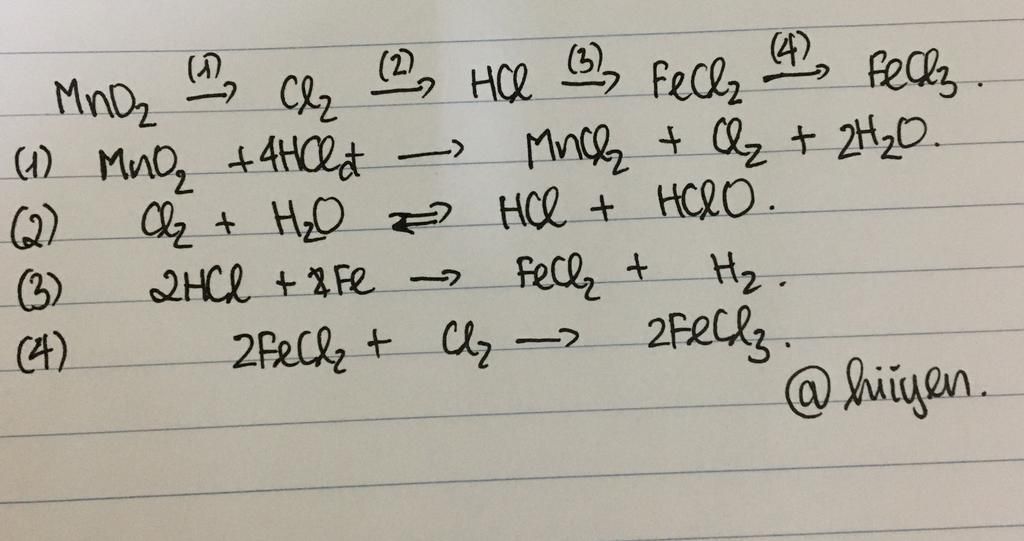 MnO₂ (1)→ Cl₂ (2)→ HCl (3)→ FeCl₂ (4)→ FeCl₃.
(1) MnO₂ + 4HClđ → MnCl₂ + Cl₂ + 2H₂O.
(2) Cl₂ + H₂O ⇌ HCl + HClO.
(3) 2HCl + Fe → FeCl₂ + H₂.
(4) 2FeCl₂ + Cl₂ → 2FeCl₃.
@hiiyen.